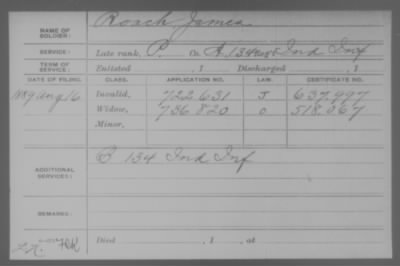 NAME OF SOLDIER: Roach James
SERVICE: Late rank, P. Co. A, 134 Reg't Ind Inf
TERM OF SERVICE: Enlisted , 1 Discharged , 1
DATE OF FILING. CLASS. APPLICATION NO. LAW. CERTIFICATE NO.
1889 Aug 16 Invalid, 722.631 J. 637.997
Widow, 736.820 O. 518.067
Minor,
ADDITIONAL SERVICES: B 134 Ind Inf
REMARKS:
Died , 1 , at